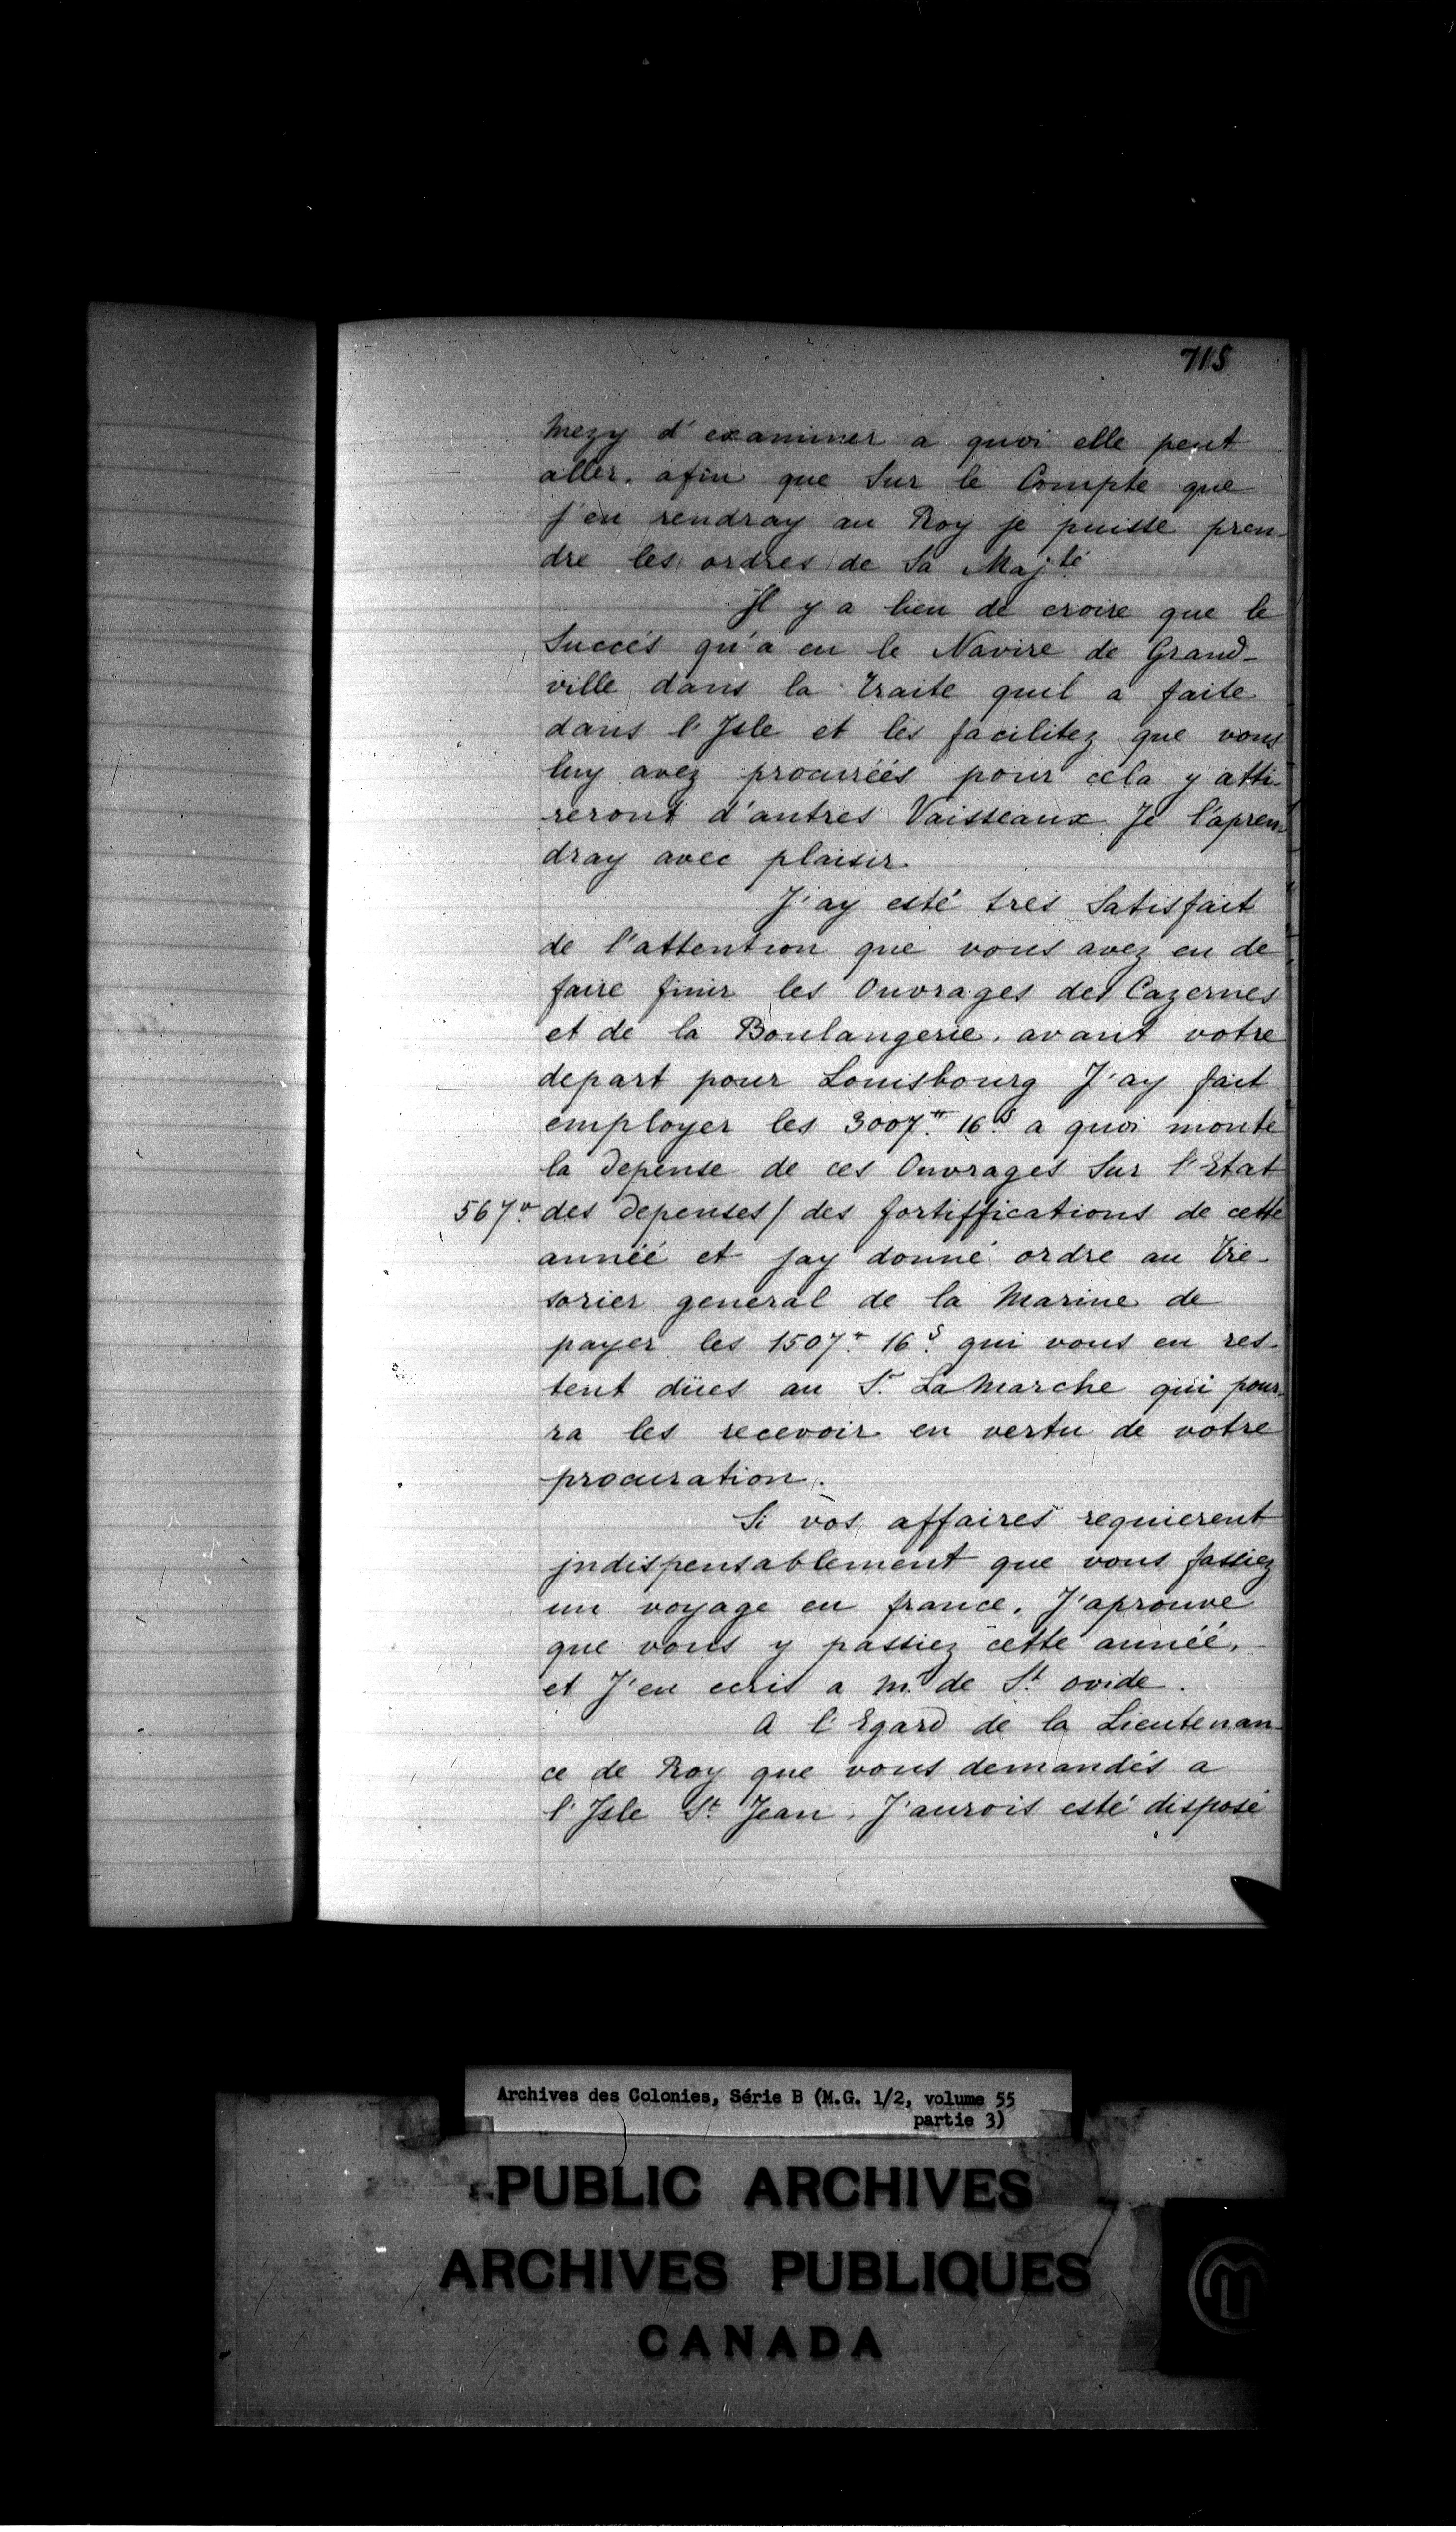 715
Mezy d'examiner a quoi elle peut
aller. afin que Sur le Compte que
j'en rendray au Roy je puisse pren-
dre les ordres de Sa Maj.té
Il y a lieu de croire que le
Succés qu'a eu le Navire de Grand-
ville dans la traite quil a faite
dans l'Isle et les facilitez que vous
luy avez procuréés pour cela y atti-
reront d'autres Vaisseaux Je l'apren-
dray avec plaisir.
J'ay esté tres Satisfait
de l'attention que vous avez eu de
faire finir les Ouvrages des Cazernes
et de la Boulangerie. avant votre
depart pour Louisbourg J'ay fait
employer les 3007.# 16.s a quoi monte
la depense de ces Ouvrages Sur l'Etat
567v. des depenses/ des fortiffications de cette
annéé et jay donné ordre au tre-
sorier general de la Marine de
payer les 1507.# 16.s qui vous en res-
tent dües au S.r La Marche qui pour-
ra les recevoir en vertu de votre
procuration.
Si vos affaires requierent
jndispensablement que vous fassiez
un voyage en france, J'aprouve
que vous y passiez cette annéé,
et J'en ecris a m. de S.t ovide.
A l'Egard de la Lieutenan-
ce de Roy que vous demandés a
l'Isle S.t Jean, J'aurois esté disposé
Archives des Colonies, Série B (M.G. 1/2, volume 55
partie 3)
PUBLIC ARCHIVES
ARCHIVES PUBLIQUES
CANADA